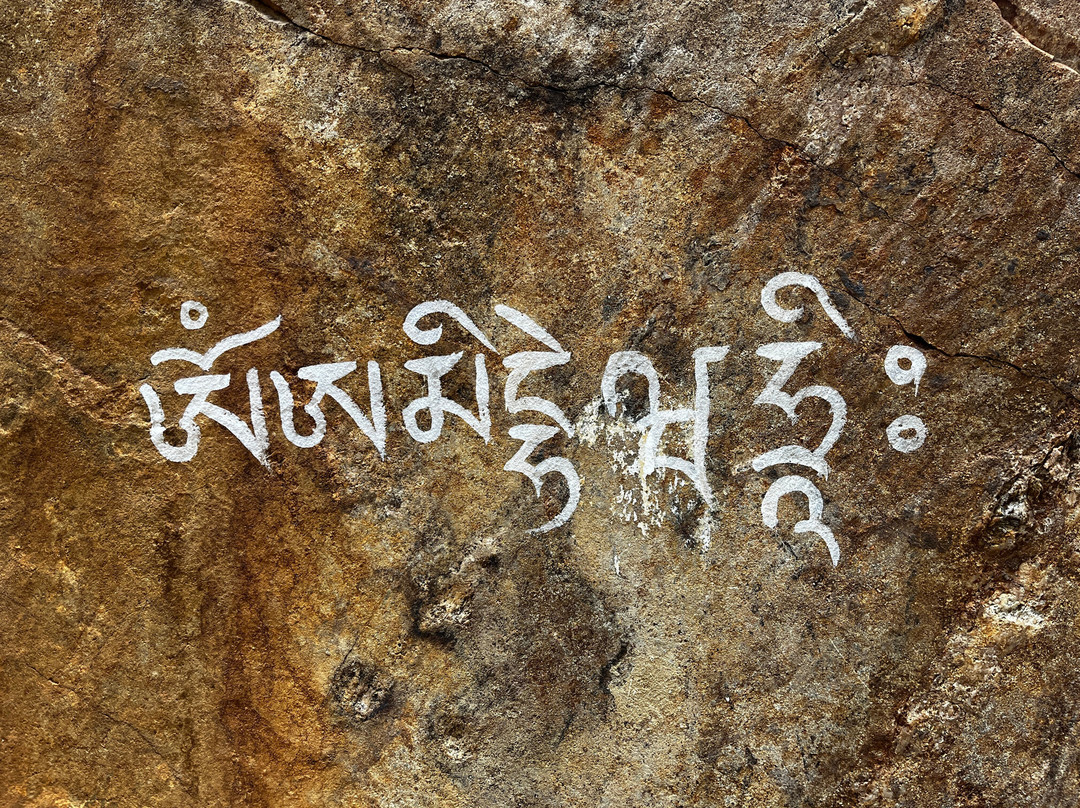 ཨོཾཨམིདྷེཝཧྲཱིཿ